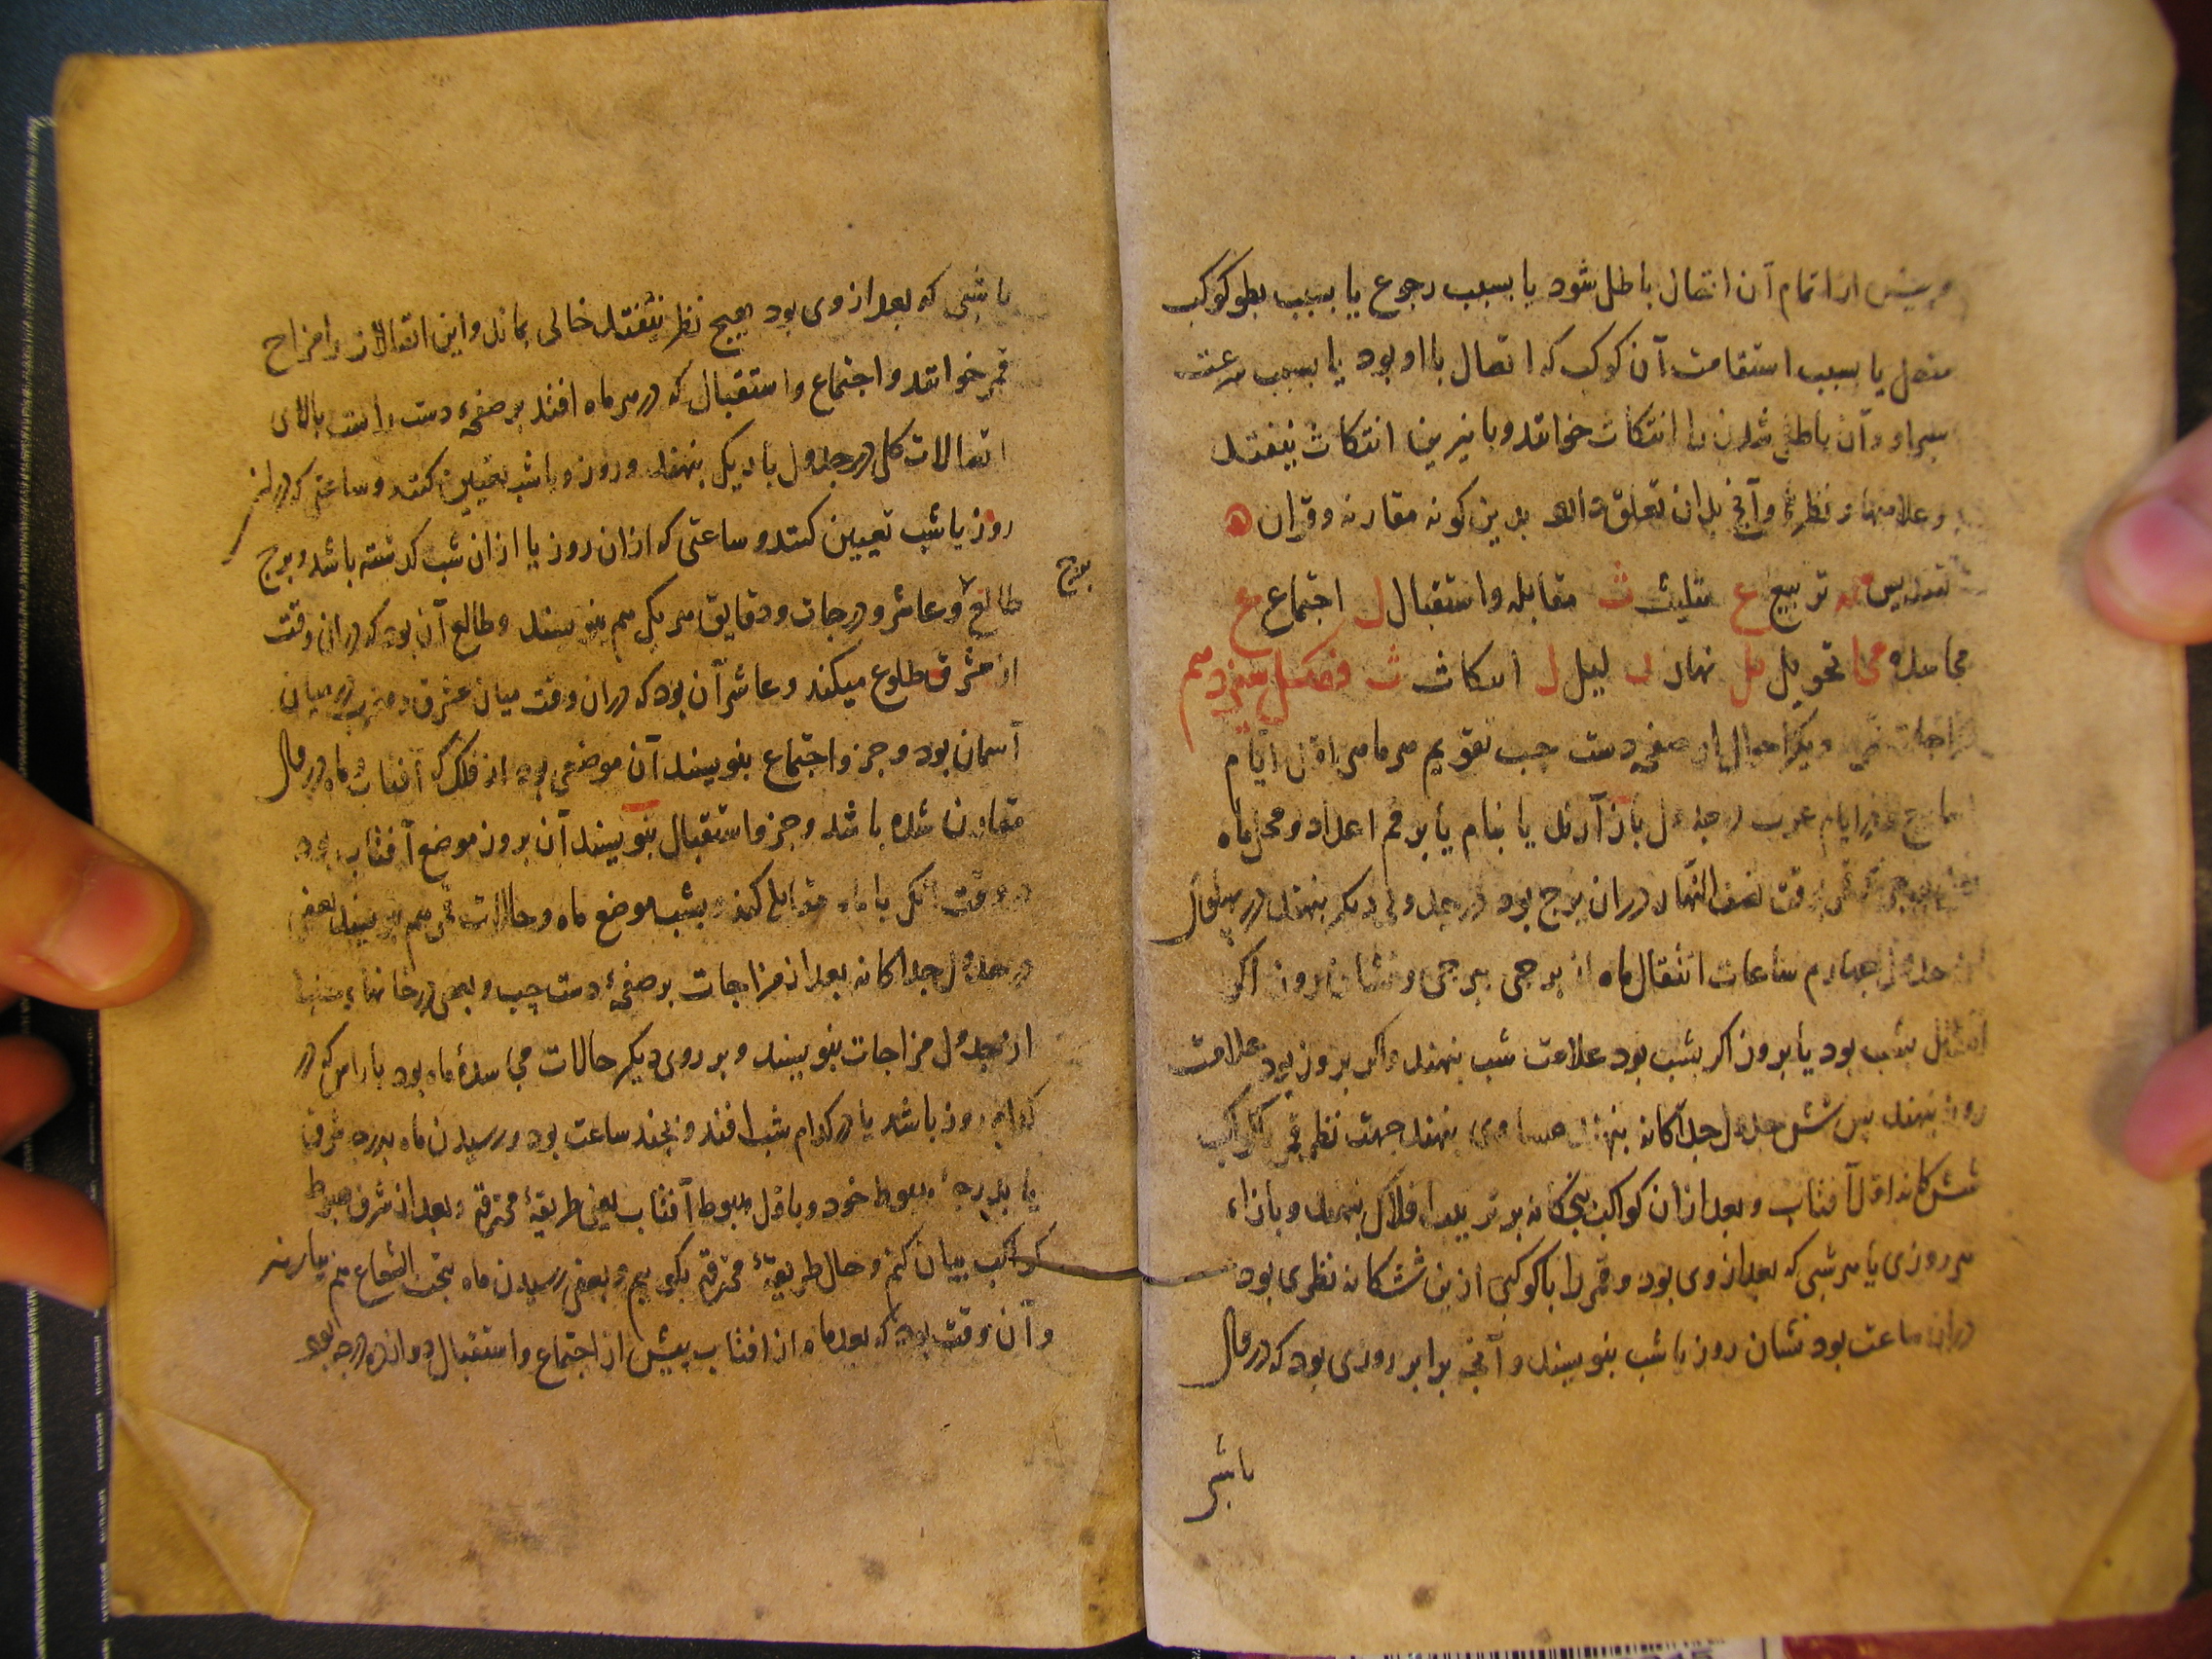 و پیش از اتمام آن اتصال باطل شود یا بسبب رجوع یا بسبب بطو کوکب
متصل یا بسبب استقامت آن کوکب که اتصال باو بود یا بسبب سرعت
سیر او و آن باطل شدن را انتکاث خوانند و با نیرین انتکاث نیفتد
و علامتهاء نظرها و آنچ بدان تعلق دارد بدین کونه مقارنه و قران ه
تسدیس س تربیع ع تثلیث ث مقابله و استقبال ل اجتماع ع
مجاسده مجا تحویل یل نهار ر لیل ل انتکاث ث فصل سیزدهم
مزاجات قمر و دیکر احوال او صفحه دست چپ تقویم هر ماهی اول ایام
و ایام عرب در جدول باز آرند یا بنام یا برقم اعداد و محل ماه
وقت نصف النهار در آن برج بود در جدولی دیکر بنهند و در پهلوی آن
جدول چهارم ساعات انتقال ماه از برجی ببرجی و نشان روز اکر
انتقال بشب بود یا بروز اکر بشب بود علامت شب بنهند و اکر بروز بود علامت
روز بنهند پس شش جدول جداکانه بنهند جهت نظر قمر بکواکب
ششکانه اول آفتاب و بعد از آن کواکب پنجکانه بر ترتیب افلاک بنهند و بازاء
هر روزی یا هر شبی که بعد از وی بود و قمر را با کوکبی ازین ششکانه نظری بود
در آن ساعت بود نشان روز یا شب بنویسند و آنچ برابر روزی بود که در آن
یا شبی
یا شبی که بعد از وی بود هیچ نظر نیفتد خالی بماند و این اتصالات را مزاج
قمر خوانند و اجتماع و استقبال که در هر ماه افتد بر صفحه دست راست بالای
اتصالات کلی در جدول باریک بنهند و روز و یا شب تعیین کنند و ساعتی که در آن
روز یا شب تعیین کنند و ساعتی که از آن روز یا از آن شب کذشته باشد و برج
برج
طالع و عاشر و درجات و دقایق هر یک هم بنویسند و طالع آن بود که در آن وقت
از مشرق طلوع میکند و عاشر آن بود که در آن وقت میان مشرق و مغرب در میان
آسمان بود و جزو اجتماع بنویسند آن موضعی بود از فلک که آفتاب و ماه در آن
مقارن شده باشد و جزو استقبال بنویسند آن بروز موضع آفتاب بود
در وقت آنکه با ماه مقابله کند و بشب موضع ماه و حالات قمر هم بنویسند بعضی
در جدول جداکانه بعد از مزاجات بر صفحه دست چپ و بعضی در خانهاء
از جدول مزاجات بنویسند و بر روی دیکر حالات مجاسده ماه بود با راس که در
کدام روز باشد یا در کدام شب افتد و بچند ساعت بود و رسیدن ماه بدرجه شرف
یا بدرجه هبوط خود و باول هبوط آفتاب یعنی طریقه محترقه و بعد از شرف و هبوط
کواکب بیان کنم و حال طریقه محترقه بکوییم و بعضی رسیدن ماه بتحت الشعاع هم بیارند
و آن وقت بود که بعد ماه از آفتاب پیش از اجتماع و استقبال دوازده درجه بود